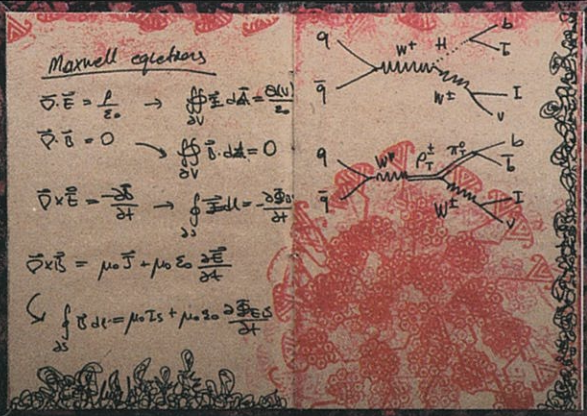 Maxwell equations
∇⃗·E⃗ = ρ/ε₀ → ∯∂V E⃗ dA⃗ = Q(V)/ε₀
∇⃗·B⃗ = 0 → ∯∂V B⃗ dA⃗ = 0
∇⃗×E⃗ = -∂B⃗/∂t → ∮∂S E⃗ dl = -∂Φ/∂t
∇⃗×B⃗ = μ₀J⃗ + μ₀ε₀ ∂E⃗/∂t
∮∂S B⃗ dl = μ₀Is + μ₀ε₀ ∂Φ/∂t
q W± H b
b̄
q̄ W± l
ν
q W* ρT± πT⁰ b
b̄
q̄ W± l
ν